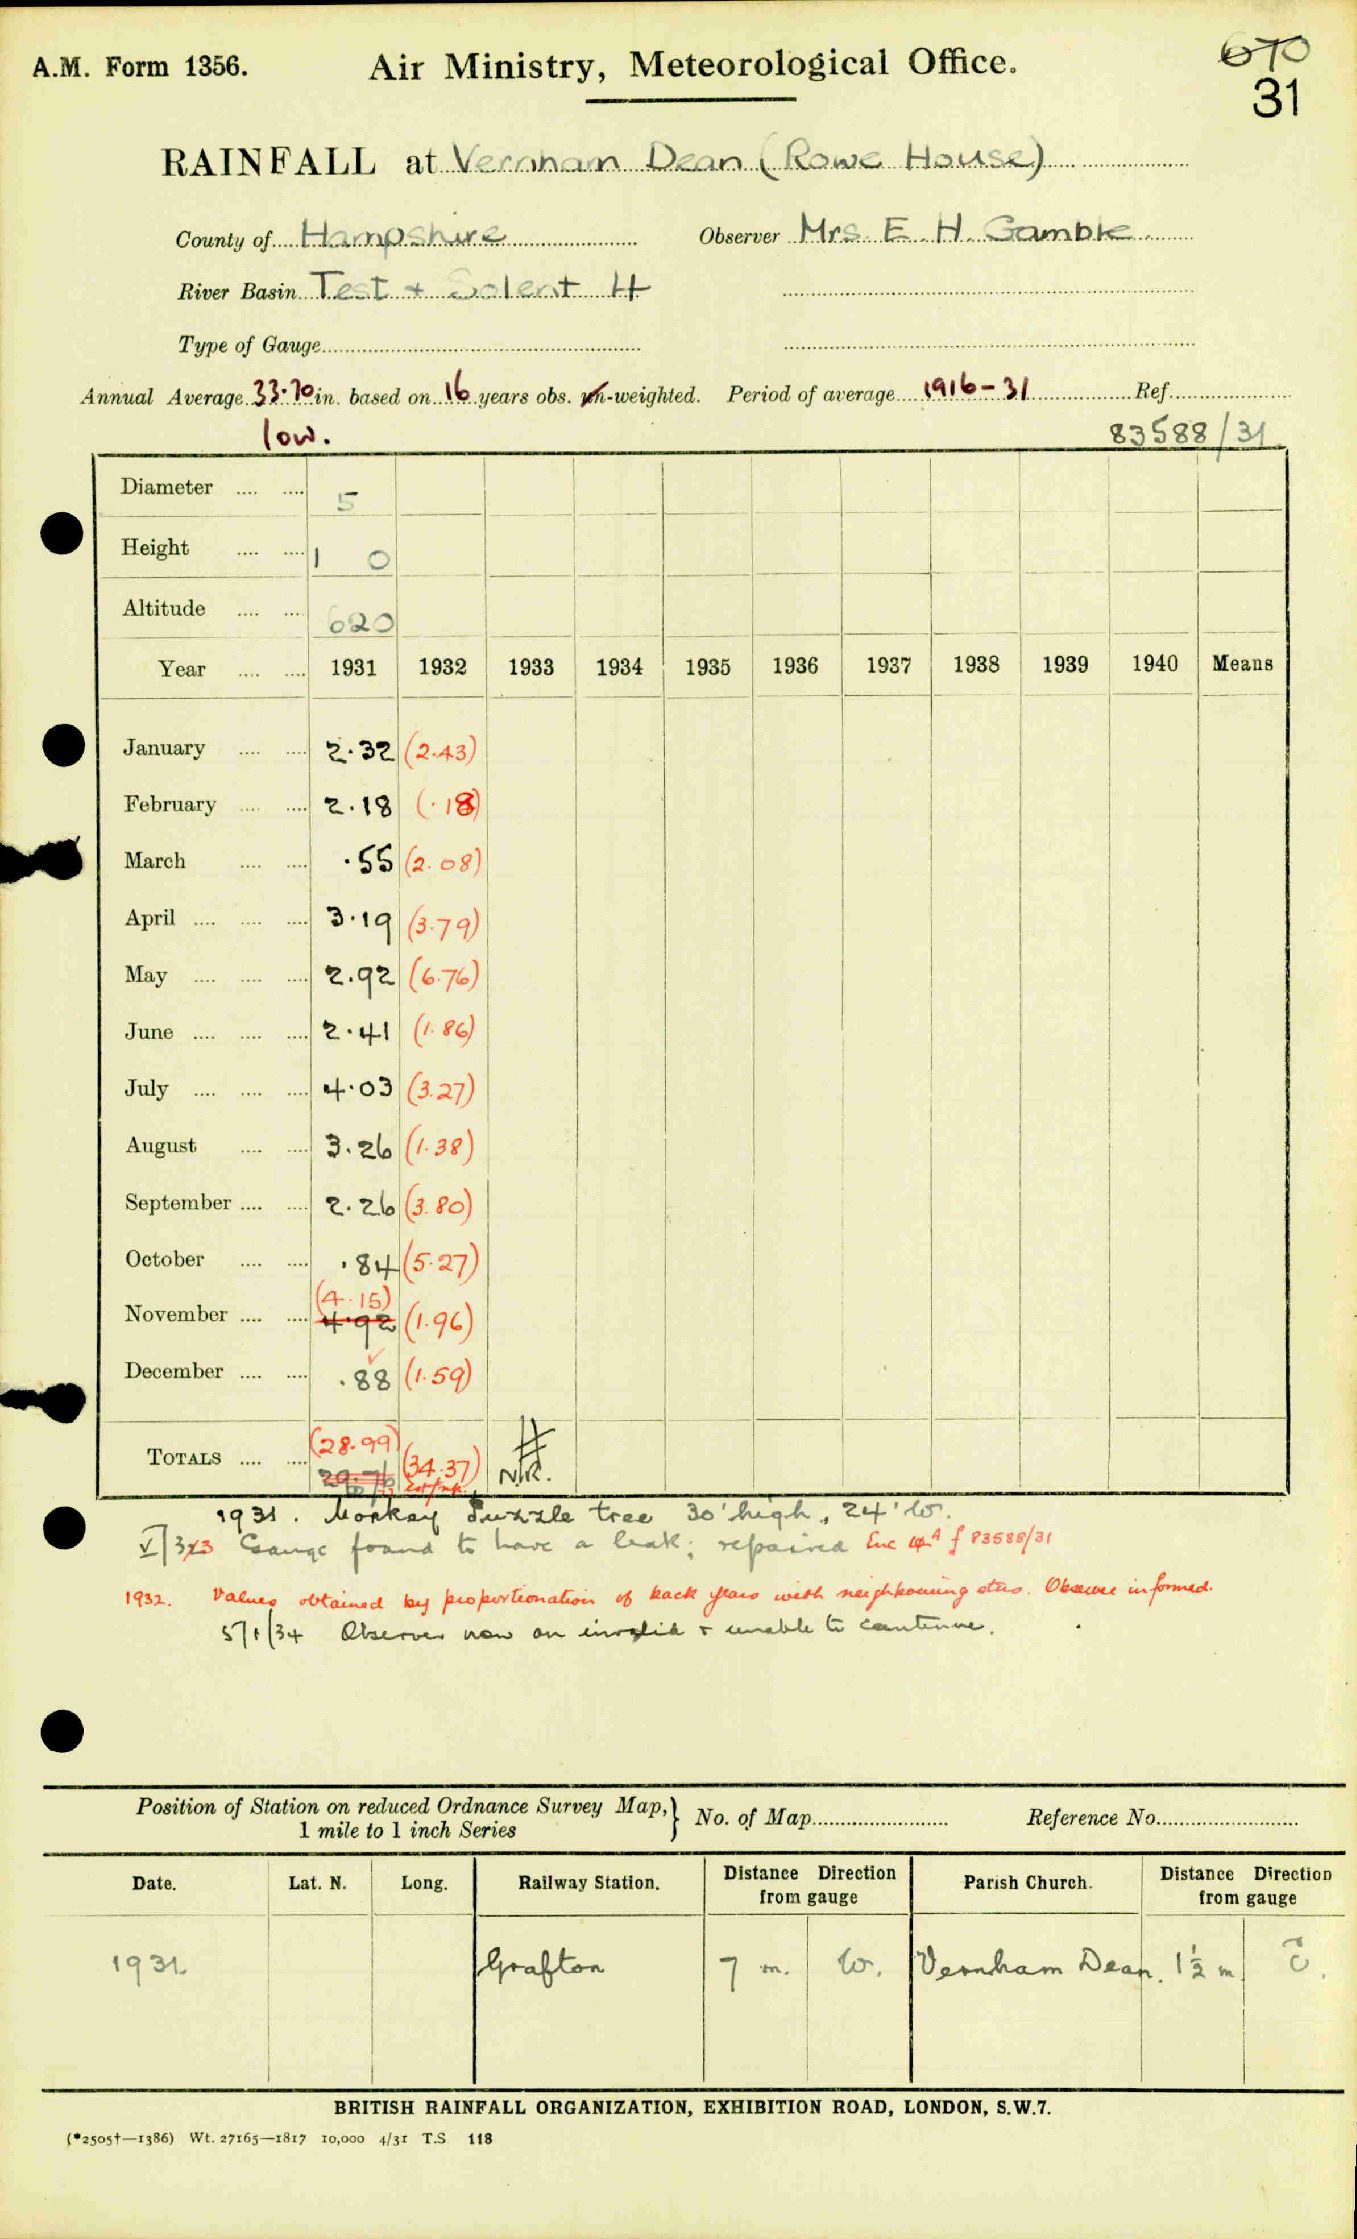 A.M. Form 1356. Air Ministry, Meteorological Office. 670
31
RAINFALL at Vernham Dean (Rowe House)
County of Hampshire Observer Mrs E. H. Gamble
River Basin Test + Solent 4
Type of Gauge
Annual Average 33.70 in. based on 16 years obs. un-weighted. Period of average 1916-31 Ref.
low. 83588/31
Diameter 5
Height 1 0
Altitude 620
Year 1931 1932 1933 1934 1935 1936 1937 1938 1939 1940 Means
January 2.32 (2.43)
February 2.18 (.18)
March .55 (2.08)
April 3.19 (3.79)
May 2.92 (6.76)
June 2.41 (1.86)
July 4.03 (3.27)
August 3.26 (1.38)
September 2.26 (3.80)
October .84 (5.27)
(4.15)
November 4.92 (1.96)
December .88 (1.59)
(28.99)
TOTALS 29.76 (34.37) N.R.
1931. Monkey Puzzle tree 30' high, 24' W.
V/33 Gauge found to have a leak; repaired Enc f 83588/31
1932. Values obtained by proportionation of back years with neighbouring stns. Observer informed.
5/1/34 Observer now an invalid & unable to continue.
Position of Station on reduced Ordnance Survey Map, 1 mile to 1 inch Series } No. of Map Reference No.
Date. Lat. N. Long. Railway Station. Distance Direction from gauge Parish Church. Distance Direction from gauge
1931 Grafton 7 m. W. Vernham Dean. 1½ m
BRITISH RAINFALL ORGANIZATION, EXHIBITION ROAD, LONDON, S.W.7.
(*2505†—1386) Wt. 27165—1817 10,000 4/31 T.S. 118